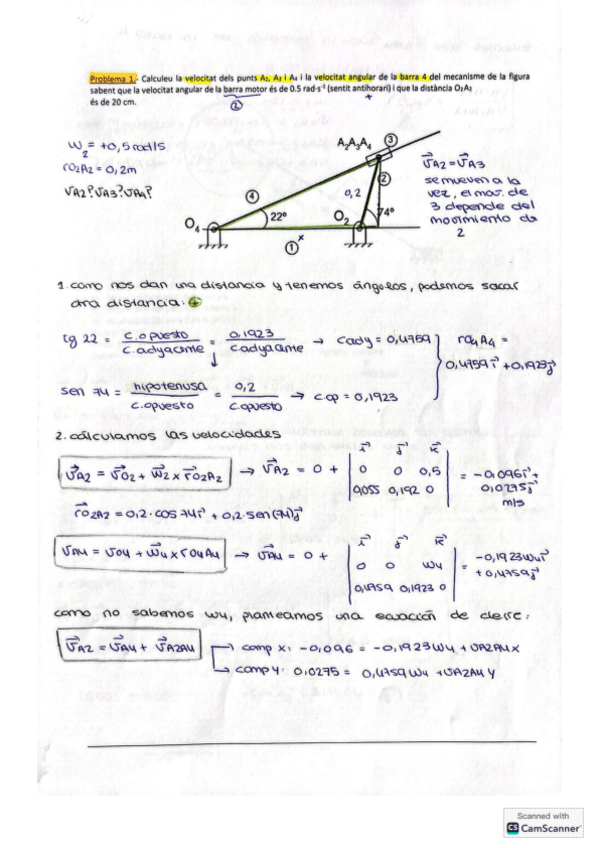 Problema 1.- Calculeu la velocitat dels punts A₂, A₃ i A₄ i la velocitat angular de la barra 4 del mecanisme de la figura
sabent que la velocitat angular de la barra motor és de 0.5 rad·s⁻¹ (sentit antihorari) i que la distància O₂A₂
és de 20 cm.
②
+
w₂ = +0,5 rad/s
rO2A2 = 0,2m
VA2? VA3? VA4?
A₂A₃A₄ ③
④ 0,2 ②
O₄ 22º O₂ 74º
① x
V⃗A2 = V⃗A3
se mueven a la
vez, el mov. de
3 depende del
movimiento de
2
1. como nos dan una distancia y tenemos ángulos, podemos sacar
otra distancia:
tg 22 = c.opuesto / c.adyacente = 0,1923 / c.adyacente → c.ady = 0,4759
rO4A4 =
0,4759 i⃗ + 0,1923 j⃗
sen 74 = hipotenusa / c.opuesto = 0,2 / c.opuesto → c.op = 0,1923
2. calculamos las velocidades
V⃗A2 = V⃗O2 + W⃗2 x r⃗O2A2 → V⃗A2 = 0 + | i⃗ j⃗ k⃗ | 0 0 0,5 | 0,055 0,192 0 | = -0,096 i⃗ + 0,0275 j⃗ m/s
r⃗O2A2 = 0,2·cos 74 i⃗ + 0,2·sen(74) j⃗
VA4 = VO4 + W⃗4 x rO4A4 → V⃗A4 = 0 + | i⃗ j⃗ k⃗ | 0 0 W4 | 0,4759 0,1923 0 | = -0,1923 W4 i⃗ + 0,4759 j⃗
como no sabemos W4, planteamos una ecuación de cierre:
V⃗A2 = V⃗A4 + V⃗A2A4 → comp x: -0,096 = -0,1923 W4 + VA2A4 x
→ comp y: 0,0275 = 0,4759 W4 + VA2A4 y
Scanned with
CS CamScanner